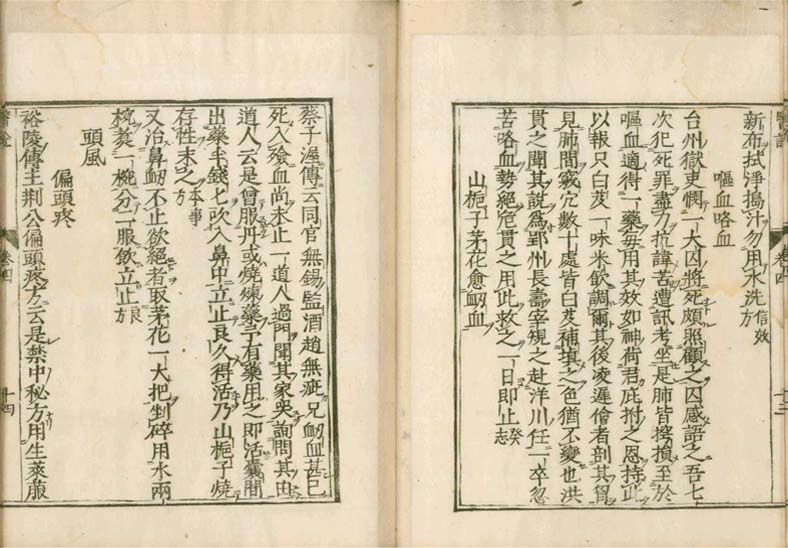 新布拭淨搗汁勿用水洗信效方
嘔血咯血
台州獄吏憫一大囚將死頗照顧之囚感語之吾七
次犯死罪盡力抗諱苦遭訊考坐是肺皆控損至於
嘔血適得一藥每用其效如神荷君庇拊之恩持此
以報只白芨一味米飲調爾其後凌遲儈者剖其胷
見肺間竅穴數十處皆白芨補塡之色猶不變也洪
貫之聞其說爲郢州長壽宰規之赴洋川任一卒忽
苦咯血勢絕危貫之用此救之一日即止癸志
山梔子茅花愈衂血
蔡子渥傳云同官無錫監酒趙無疵兄衂血甚已
死入殮血尚未止一道人過門聞其家哭詢問其由
道人云是曾服丹或燒煉藥予有藥用之即活囊間
出藥半錢匕吹入鼻中立止良久得活乃山梔子燒
存性末之本事方
又治鼻衂不止欲絕者取茅花一大把剉碎用水兩
椀煑一椀分二服飲立止良方
頭風
偏頭疼
裕陵傳王荆公偏頭疼方云是禁中秘方用生萊菔
醫說
卷四
十三
醫說
卷四
十四